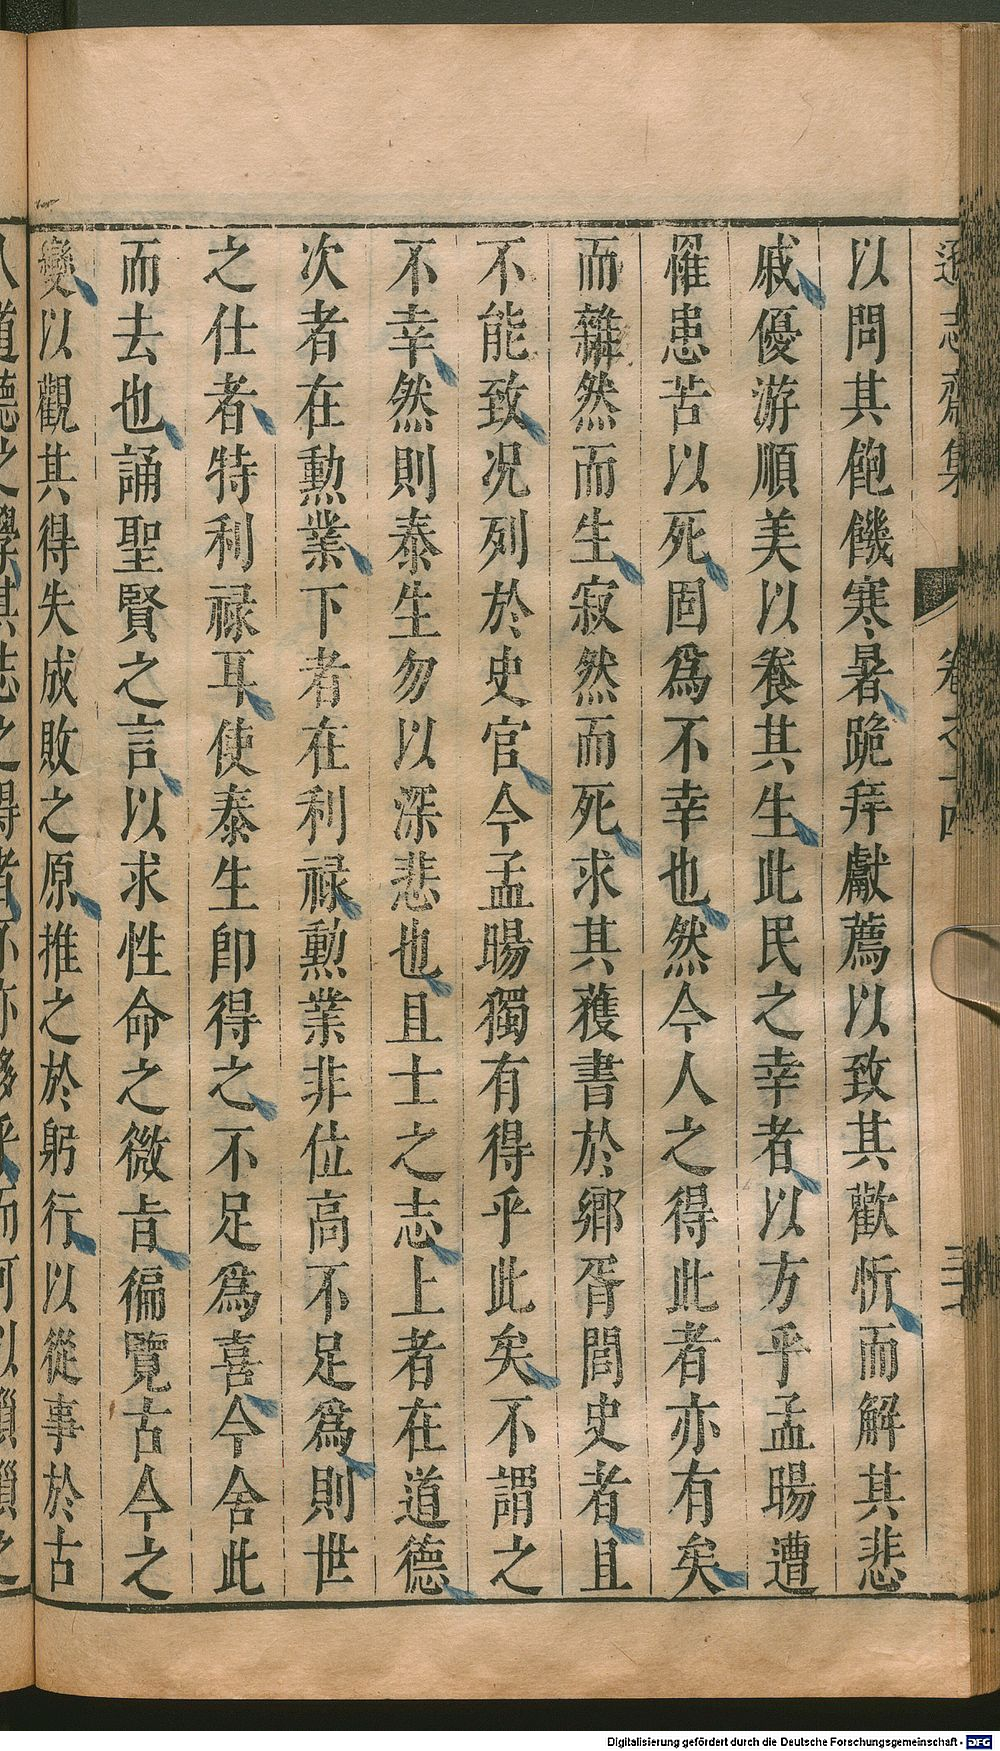 遜志齋集 卷之十四
以問其飽饑寒暑跪拜獻薦以致其歡忻而解其悲
戚優游順美以養其生此民之幸者以方乎孟暘遭
罹患苦以死固爲不幸也然今人之得此者亦有矣
而雜然而生寂然而死求其獲書於鄉胥閭史者且
不能致况列於史官今孟暘獨有得乎此矣不謂之
不幸然則泰生勿以深悲也且士之志上者在道德
次者在勳業下者在利祿勳業非位高不足爲則世
之仕者特利祿耳使泰生卽得之不足爲喜今舍此
而去也誦聖賢之言以求性命之微旨徧覽古今之
變以觀其得失成敗之原推之於躬行以從事於古
人道德之學其志之得者不亦夥乎而何以瑣瑣之
Digitalisierung gefördert durch die Deutsche Forschungsgemeinschaft - DFG